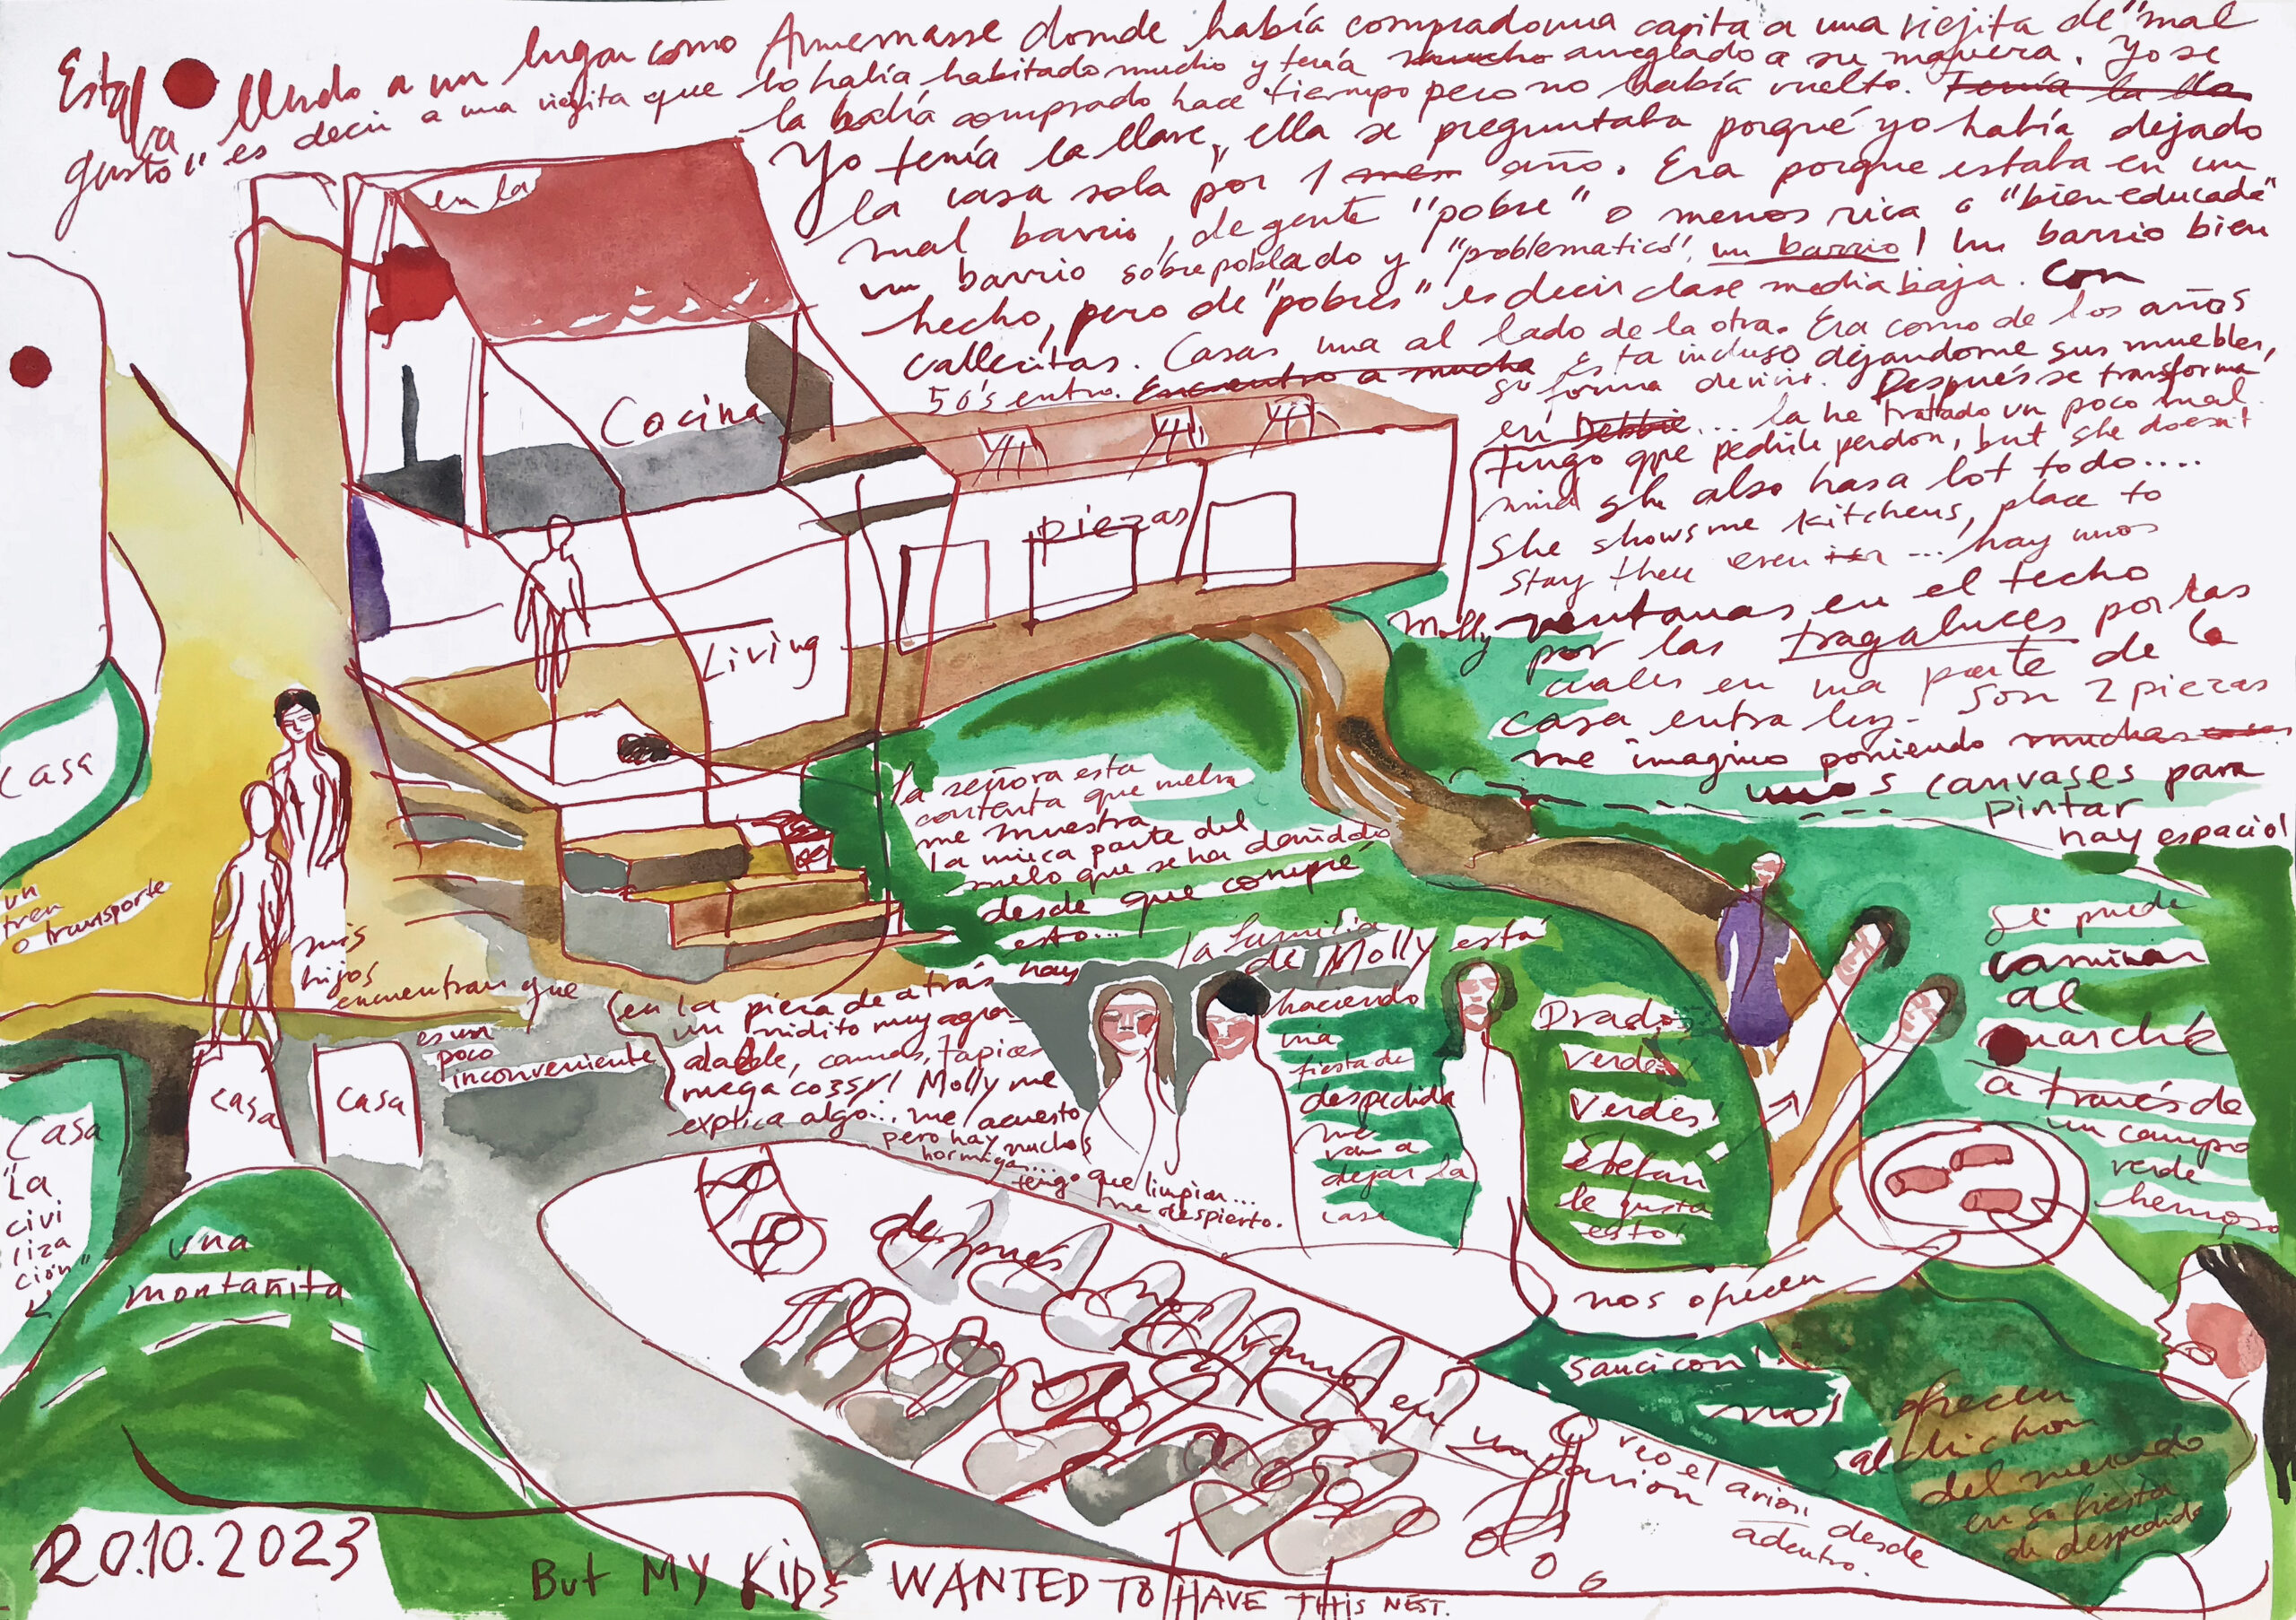 Estaba llendo a un lugar como Annemasse donde había comprado una casita a una viejita de "mal
gusto", es decir a una viejita que lo había habitado mucho y tenía mucho arreglado a su manera. Yo se
la había comprado hace tiempo pero no había vuelto. Tenía la lla
Yo tenía la llave, ella se preguntaba porqué yo había dejado
la casa sola por 1 mes año. Era porque estaba en un
mal barrio, de gente "pobre" o menos rica o "bien educada"
un barrio sobrepoblado y "problematico", un barrio! Un barrio bien
hecho, pero de "pobres" es decir clase media baja. Con
callecitas. Casas una al lado de la otra. Era como de los años
50's entro. Encuentro a mucha
Esta incluso dejandome sus muebles,
su forma de vivir. Después se transforma
en Debbie... la he tratado un poco mal
tengo que pedirle perdon, but she doesn't
mind she also has a lot to do....
She shows me kitchens, place to
stay there even ... hay unos
Molly
ventanas en el techo
por las tragaluces por las
cuales en una parte de la
casa entra luz. Son 2 piezas
me imagino poniendo muchas cosas
unos canvases para
pintar
hay espacio!
en la
Cocina
piezas
Living
casa
un
tren
o transporte
mis
hijos
encuentran que
es un
poco
inconveniente
la señora esta
contenta que vuelva
me muestra
la unica parte del
suelo que se ha dañado
desde que compré
esto...
en la pieza de atrás hay
un nidito muy agra-
dable, camas, tapices
mega cozsy! Molly me
explica algo... me acuesto
pero hay muchos
hormigas...
tengo que limpiar...
me despierto.
la familia
de Molly está
haciendo
una
fiesta de
despedida
me
van a
dejar la
casa
Prados
verdes
verdes!
Estefan
le gusta
esto!
Se puede
caminar
al
marché
a través de
un campo
verde
hermoso
casa
casa
Casa
"La
civi
liza
ción"
una
montañita
nos ofrecen
saucicon!
nos
ofrecen
salchichon
del mercado
en su fiesta
de despedida
después
vamos
en
un avion
veo el avion desde
adentro.
20.10.2023
But MY KIDS WANTED TO HAVE THIS NEST.